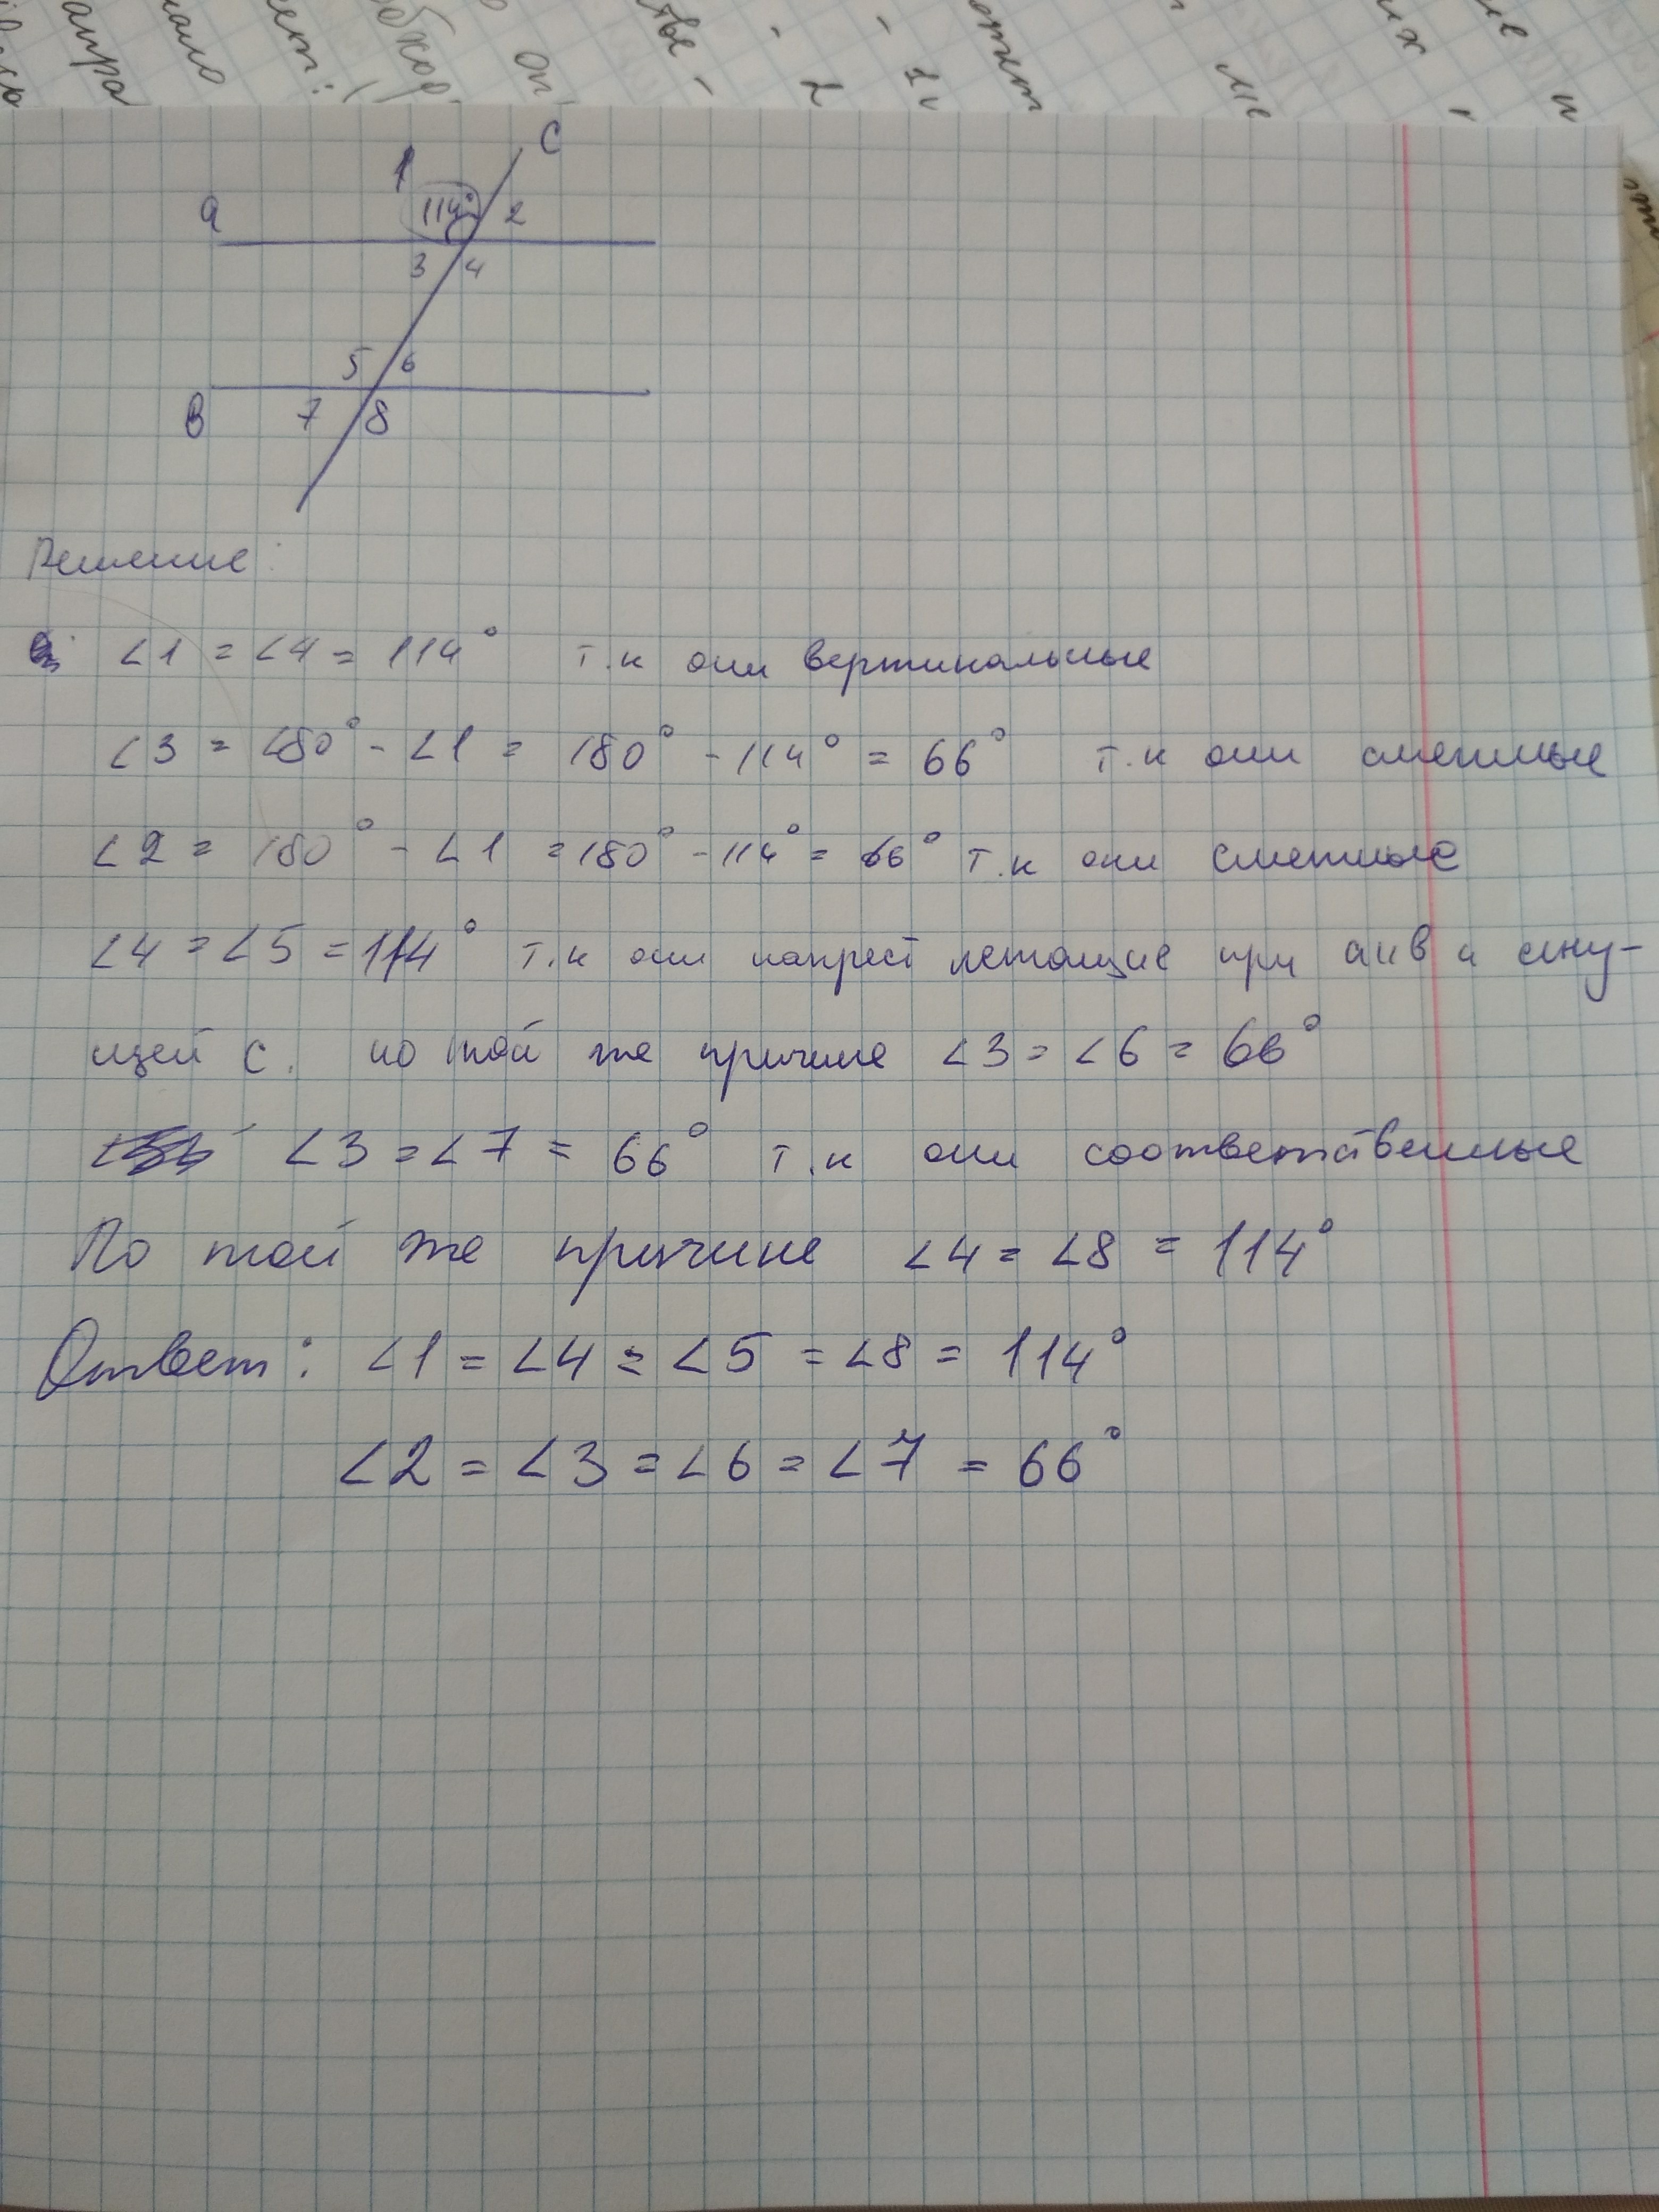 апра
мало
ет:
обкод
оп
тве -
2
1 С
1
114°
2
а
3 4
5 6
В
7 8
Решение:
∠1 = ∠4 = 114° т.к они вертикальные
∠3 = 180° - ∠1 = 180° - 114° = 66° т.к они смежные
∠2 = 180° - ∠1 = 180° - 114° = 66° т.к они смежные
∠4 = ∠5 = 114° т.к они накрест лежащие при а и в и секу-
щей с. по той же причине ∠3 = ∠6 = 66°
∠3 = ∠7 = 66° т.к они соответственные
По той же причине ∠4 = ∠8 = 114°
Ответ: ∠1 = ∠4 = ∠5 = ∠8 = 114°
∠2 = ∠3 = ∠6 = ∠7 = 66°